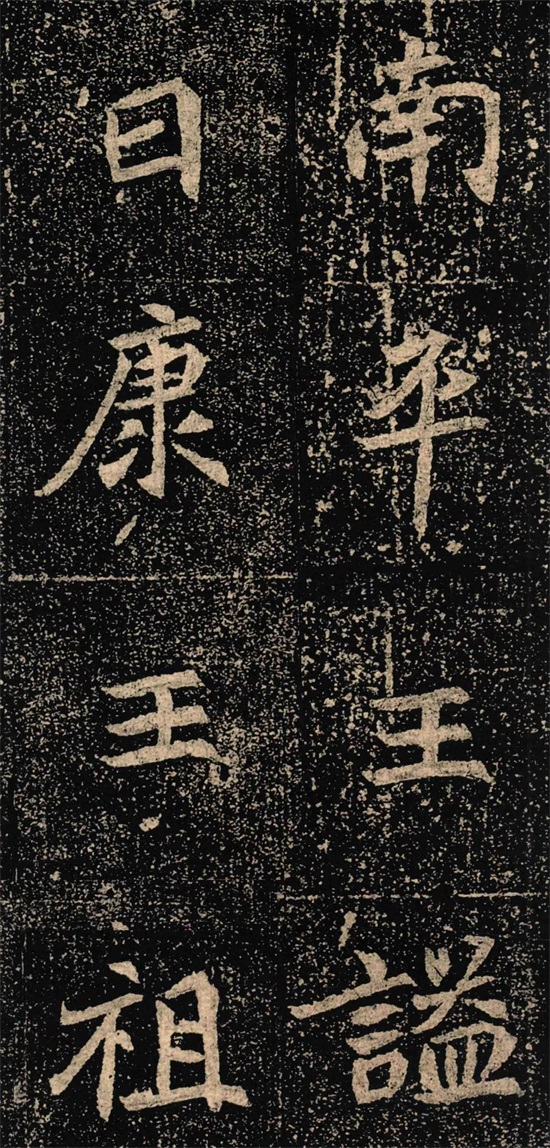 南平王謚
曰康王祖